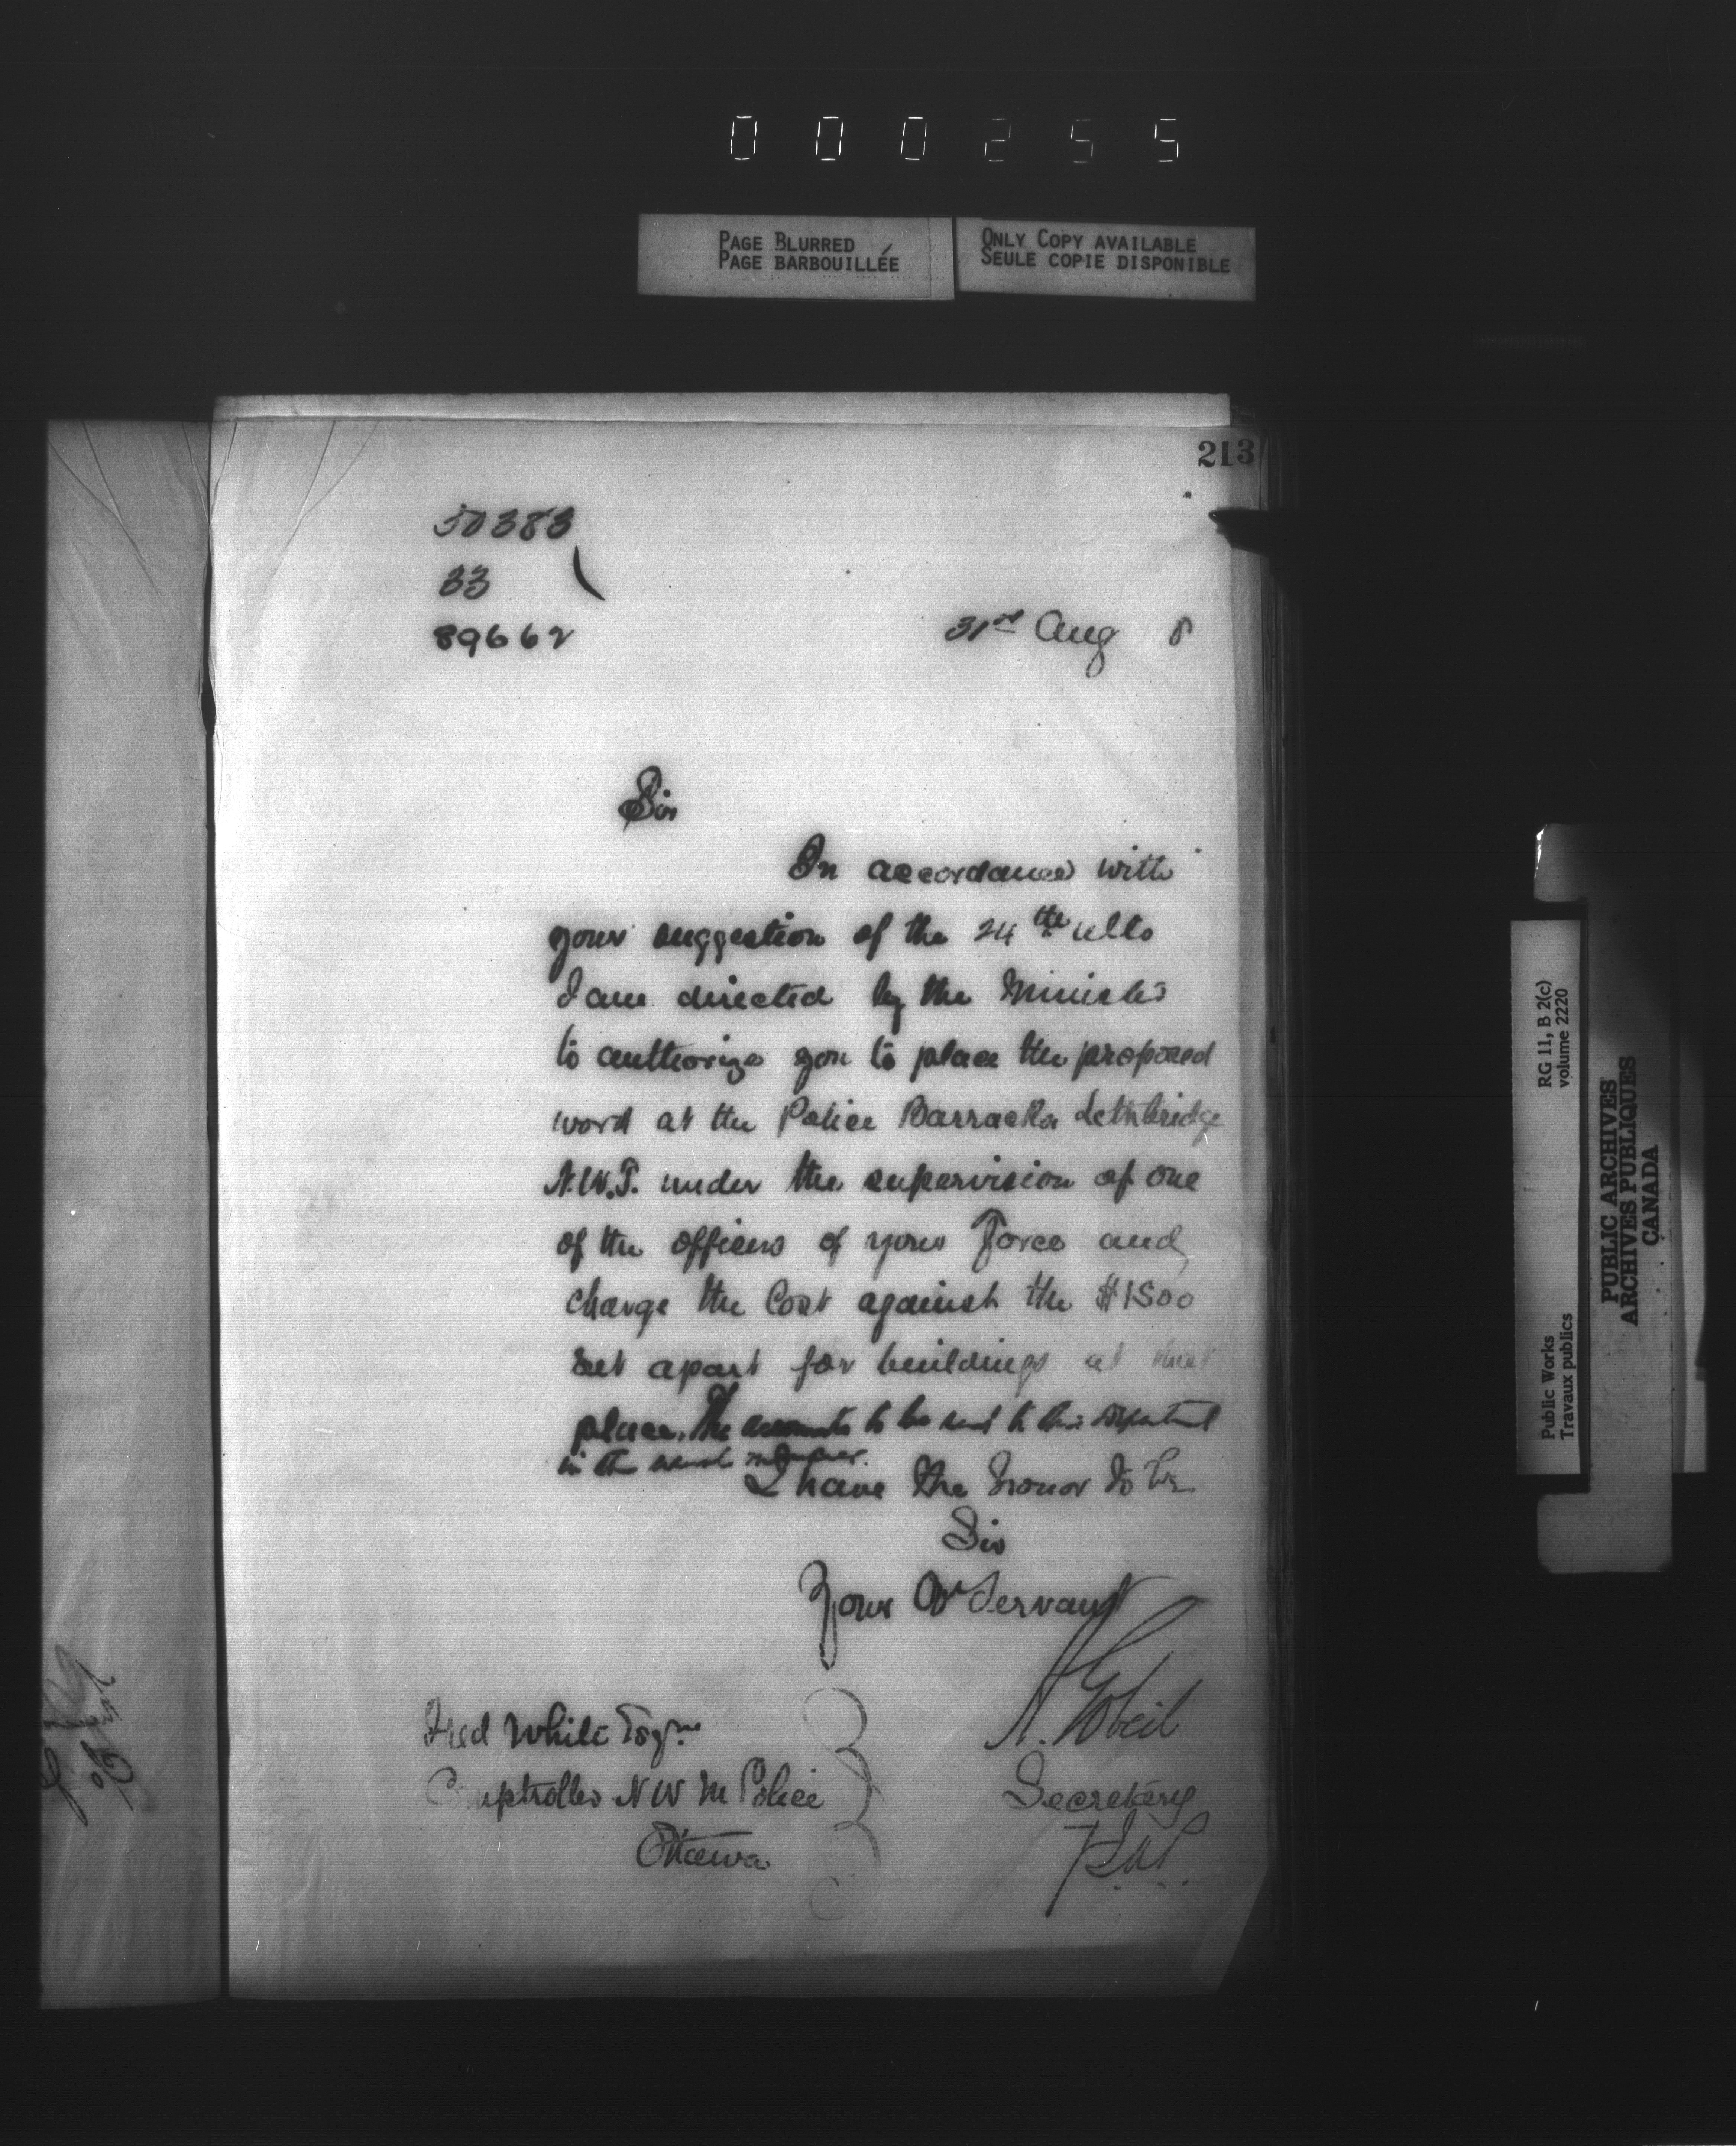 000255
PAGE BLURRED
PAGE BARBOUILLÉE
ONLY COPY AVAILABLE
SEULE COPIE DISPONIBLE
213
50383
33
89662
31st Aug 8
Sir
In accordance with
your suggestion of the 24th ulto
I am directed by the Minister
to authorize you to place the proposed
word at the Police Barracks Lethbridge
N.W.T. under the supervision of one
of the officers of your Force and
charge the Cost against the $1500
set apart for buildings at that
place. The accounts to be sent to this Department
in the usual manner.
I have the honor to be
Sir
Your Ob Servant
A. Gobeil
Secretary
Fred White Esqre
Comptroller N W M Police
Ottawa
RG 11, B 2(c)
volume 2220
Public Works
Travaux publics
PUBLIC ARCHIVES
ARCHIVES PUBLIQUES
CANADA